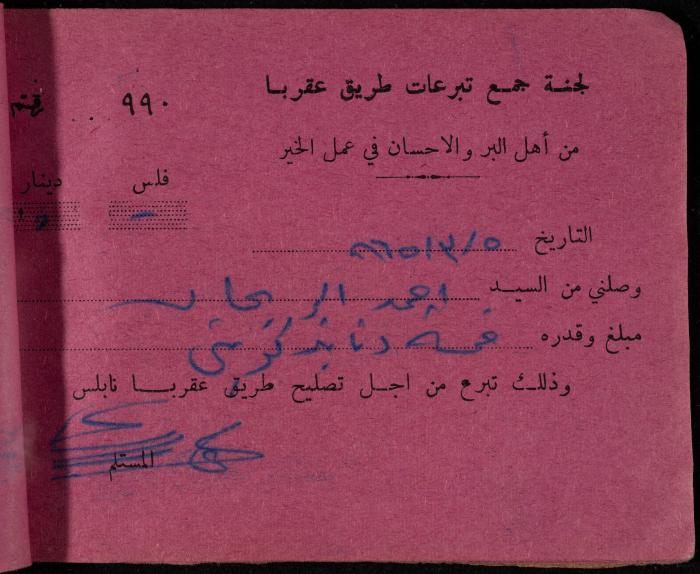 لجنة جمع تبرعات طريق عقربا
٩٩٠
من أهل البر والاحسان في عمل الخير
فلس دينار
التاريخ ٥/٣/
وصلني من السيد احمد
مبلغ وقدره خمسة دنانير
وذلك تبرع من اجل تصليح طريق عقربا نابلس
المستلم